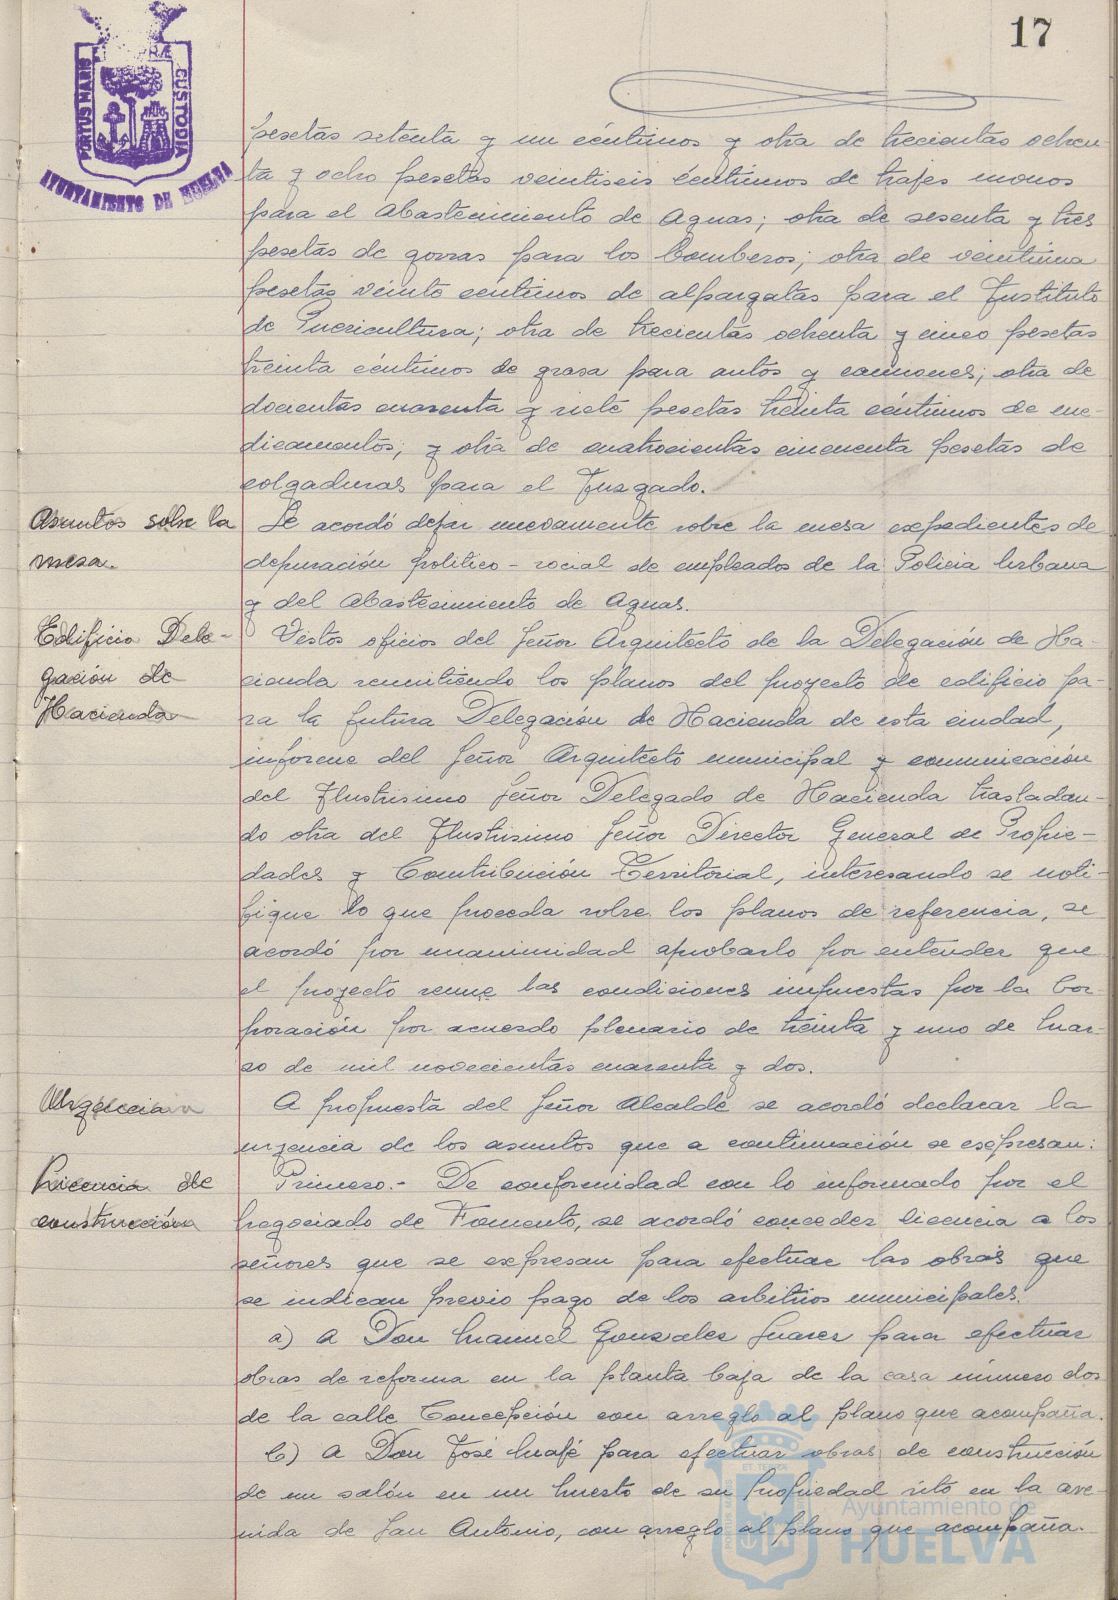 17
PORTUS MARIS
CUSTODIA
AYUNTAMIENTO DE HUELVA
pesetas setenta y un céntimos y otra de trecientas ochen-
ta y ocho pesetas veintiseis céntimos de trajes monos
para el Abastecimiento de Aguas; otra de sesenta y tres
pesetas de gorras para los bomberos; otra de veintiuna
pesetas veinte céntimos de alpargatas para el Instituto
de Puericultura; otra de trecientas ochenta y cinco pesetas
treinta céntimos de grasa para autos y camiones; otra de
docientas cuarenta y siete pesetas treinta céntimos de me-
dicamentos; y otra de cuatrocientas cincuenta pesetas de
colgaduras para el Juzgado.
Asuntos sobre la
mesa.
Se acordó dejar nuevamente sobre la mesa expedientes de
depuración politico-social de empleados de la Policia Urbana
y del Abastecimiento de Aguas.
Edificio Dele-
gación de
Hacienda
Vistos oficios del Señor Arquitecto de la Delegación de Ha-
cienda remitiendo los planos del proyecto de edificio pa-
ra la futura Delegación de Hacienda de esta ciudad,
informe del Señor Arquitecto municipal y comunicación
del Ilustrisimo Señor Delegado de Hacienda trasladan-
do otra del Ilustrisimo Señor Director General de Propie-
dades y Contribución Territorial, interesando se noti-
fique lo que proceda sobre los planos de referencia, se
acordó por unanimidad aprobarlo por entender que
el proyecto reune las condiciones impuestas por la Cor-
poración por acuerdo plenario de treinta y uno de Mar-
zo de mil novecientas cuarenta y dos.
Urgencia
A propuesta del Señor Alcalde se acordó declarar la
urgencia de los asuntos que a continuación se expresan:
Licencia de
construcción
Primero.- De conformidad con lo informado por el
Negociado de Fomento, se acordó conceder licencia a los
señores que se expresan para efectuar las obras que
se indican previo pago de los arbitrios municipales.
a) A Don Manuel Gonzalez Suarez para efectuar
obras de reforma en la planta baja de la casa número dos
de la calle Concepción con arreglo al plano que acompaña.
b) A Don José Mafé para efectuar obras de construcción
de un salón en un huerto de su propiedad sito en la ave-
nida de San Antonio, con arreglo al plano que acompaña.
Ayuntamiento de
HUELVA